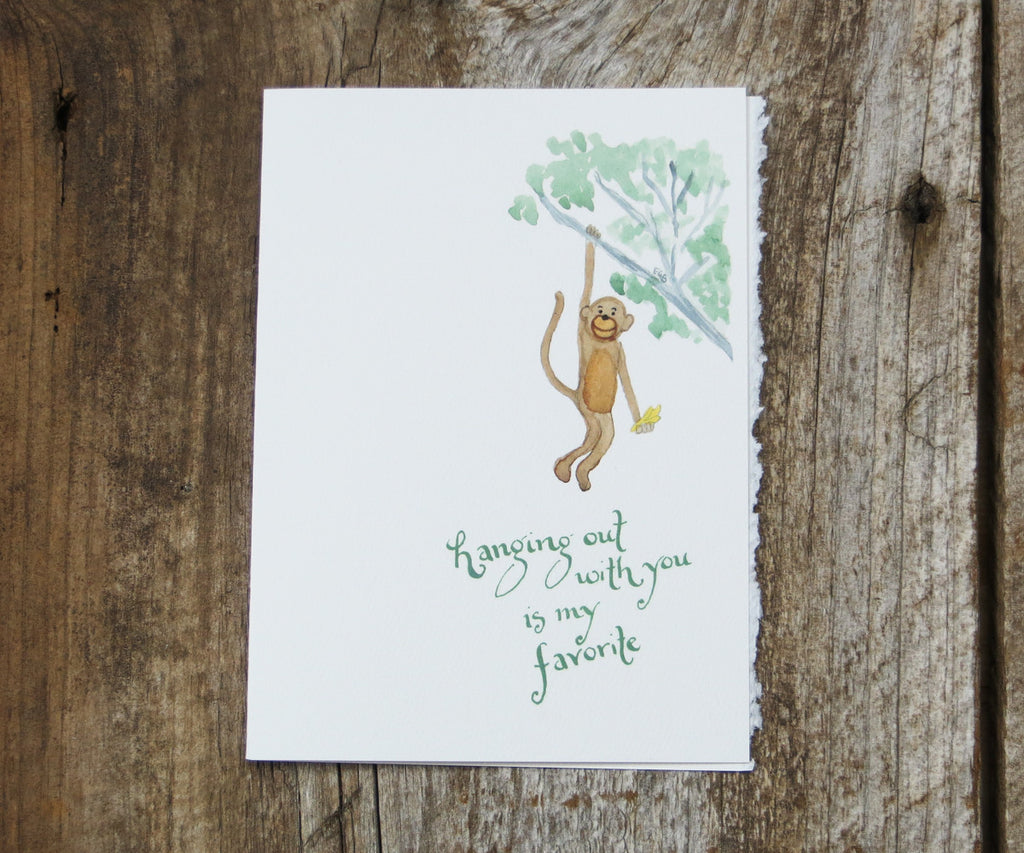 hanging out
with you
is my
favorite